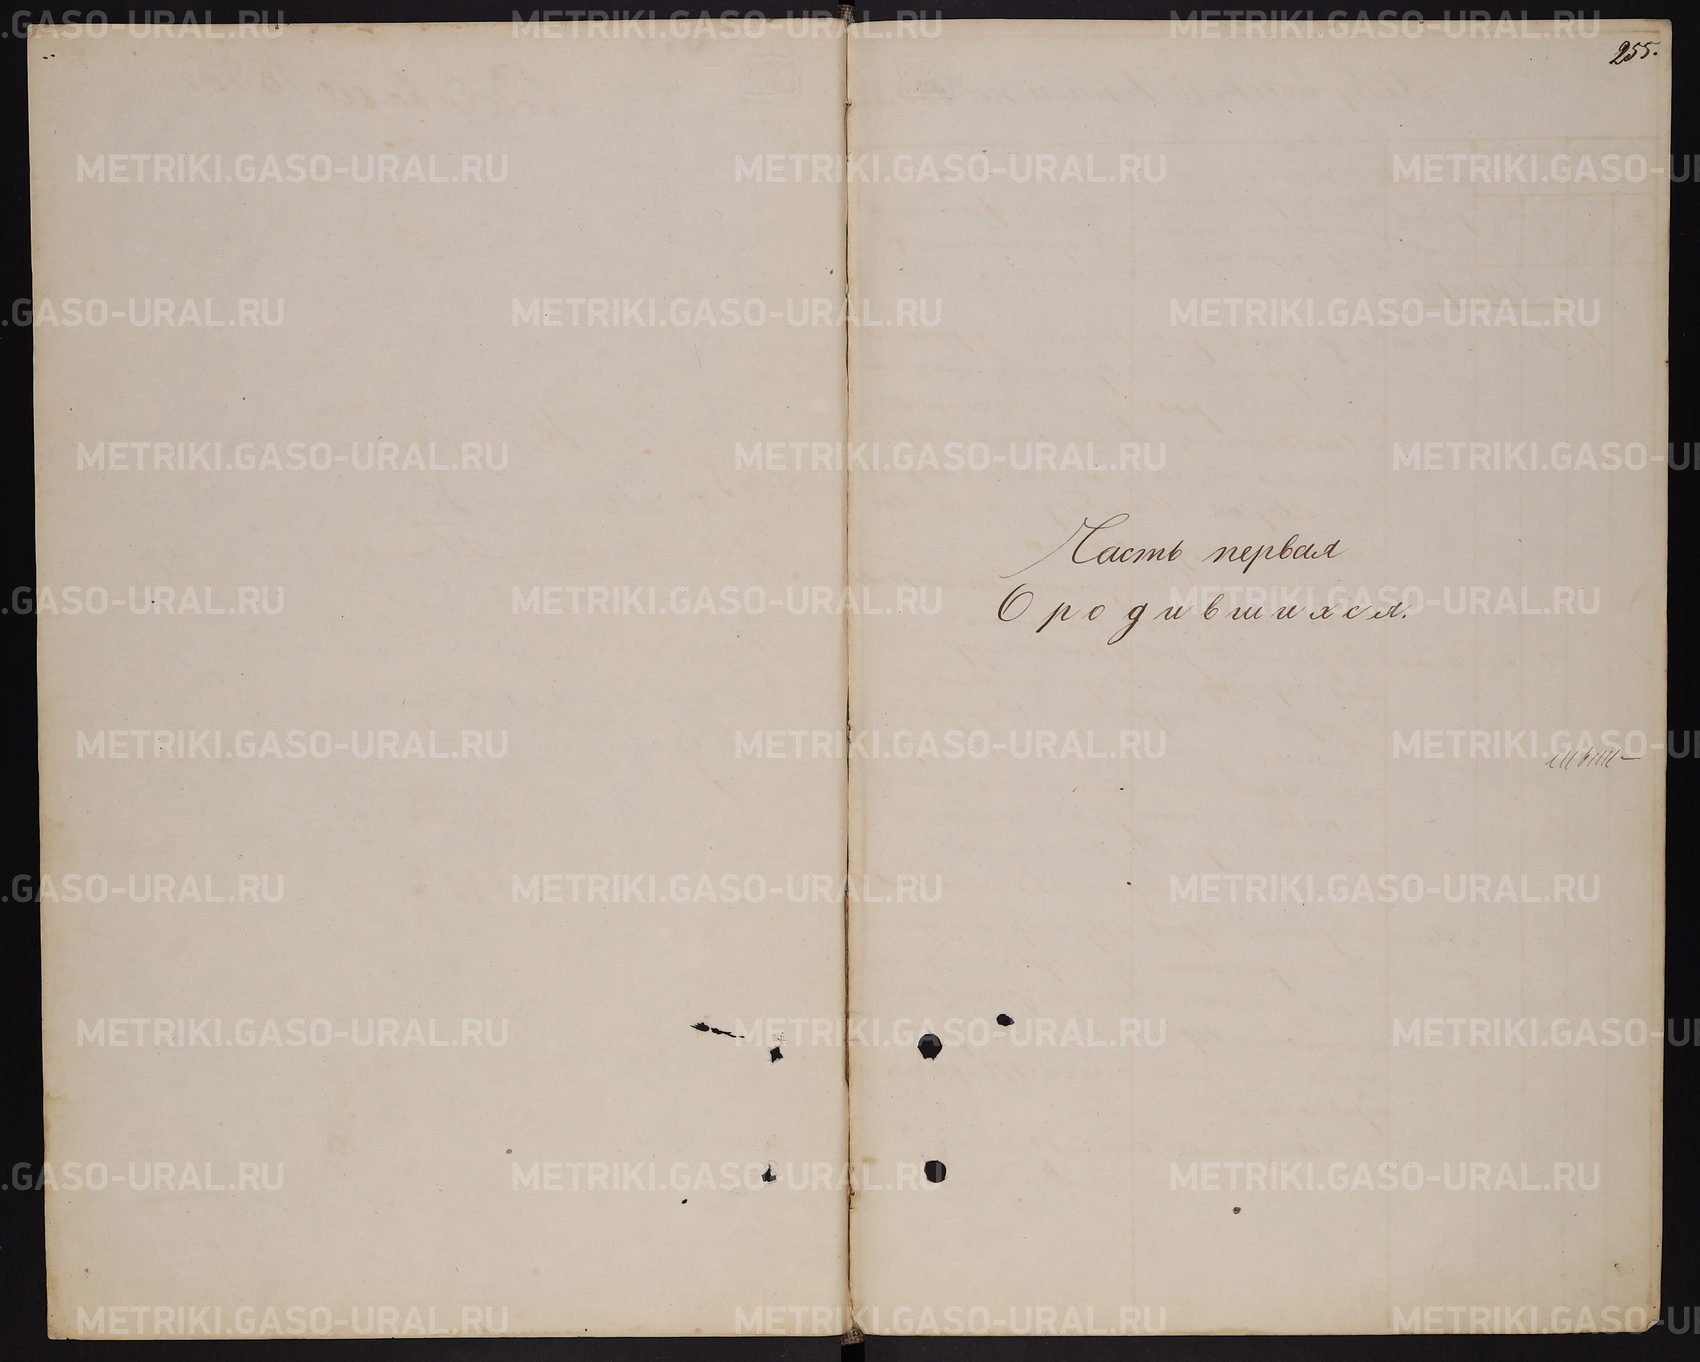 255.
Часть первая
О родившихся.
METRIKI.GASO-URAL.RU